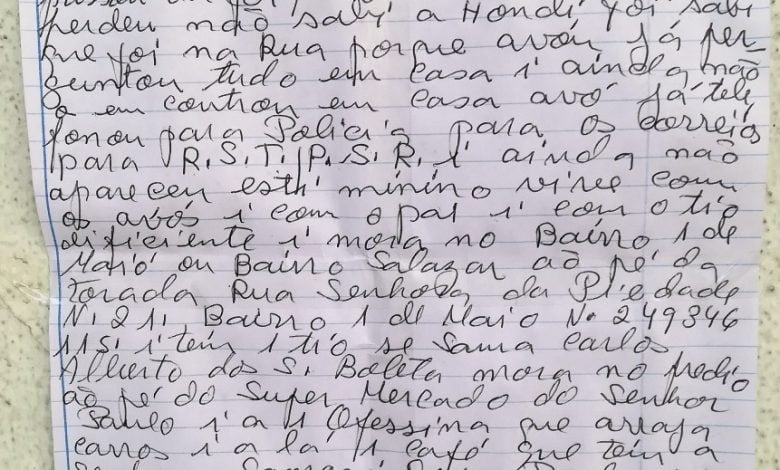 perdeu não sabi a Hondi foi sabi
que foi na Rua porque avóu já per-
guntou tudo em casa i' ainda não
o em controu em casa avó já tele
fonou para Policia para os correiós
para R.S.T.I.P.S.R. i' ainda não
apareceu esti' minino vive com
os avós i' com o pai i' com o tio
dificiente i' mora no Bairro 1 de
Maió ou Bairro Salazar ao pé da
torada Rua Senhora da Piedade
N. 21. Bairro 1 de Maio Nº 249346
115. i' tem 1 tio se sama Carlos
Alberto dos S. Baleta mora no predio
ao pé do Super Mercado do Senhor
Saulo i' a 1 Ofessina que arraja
carros i' a lá 1 café que tem a